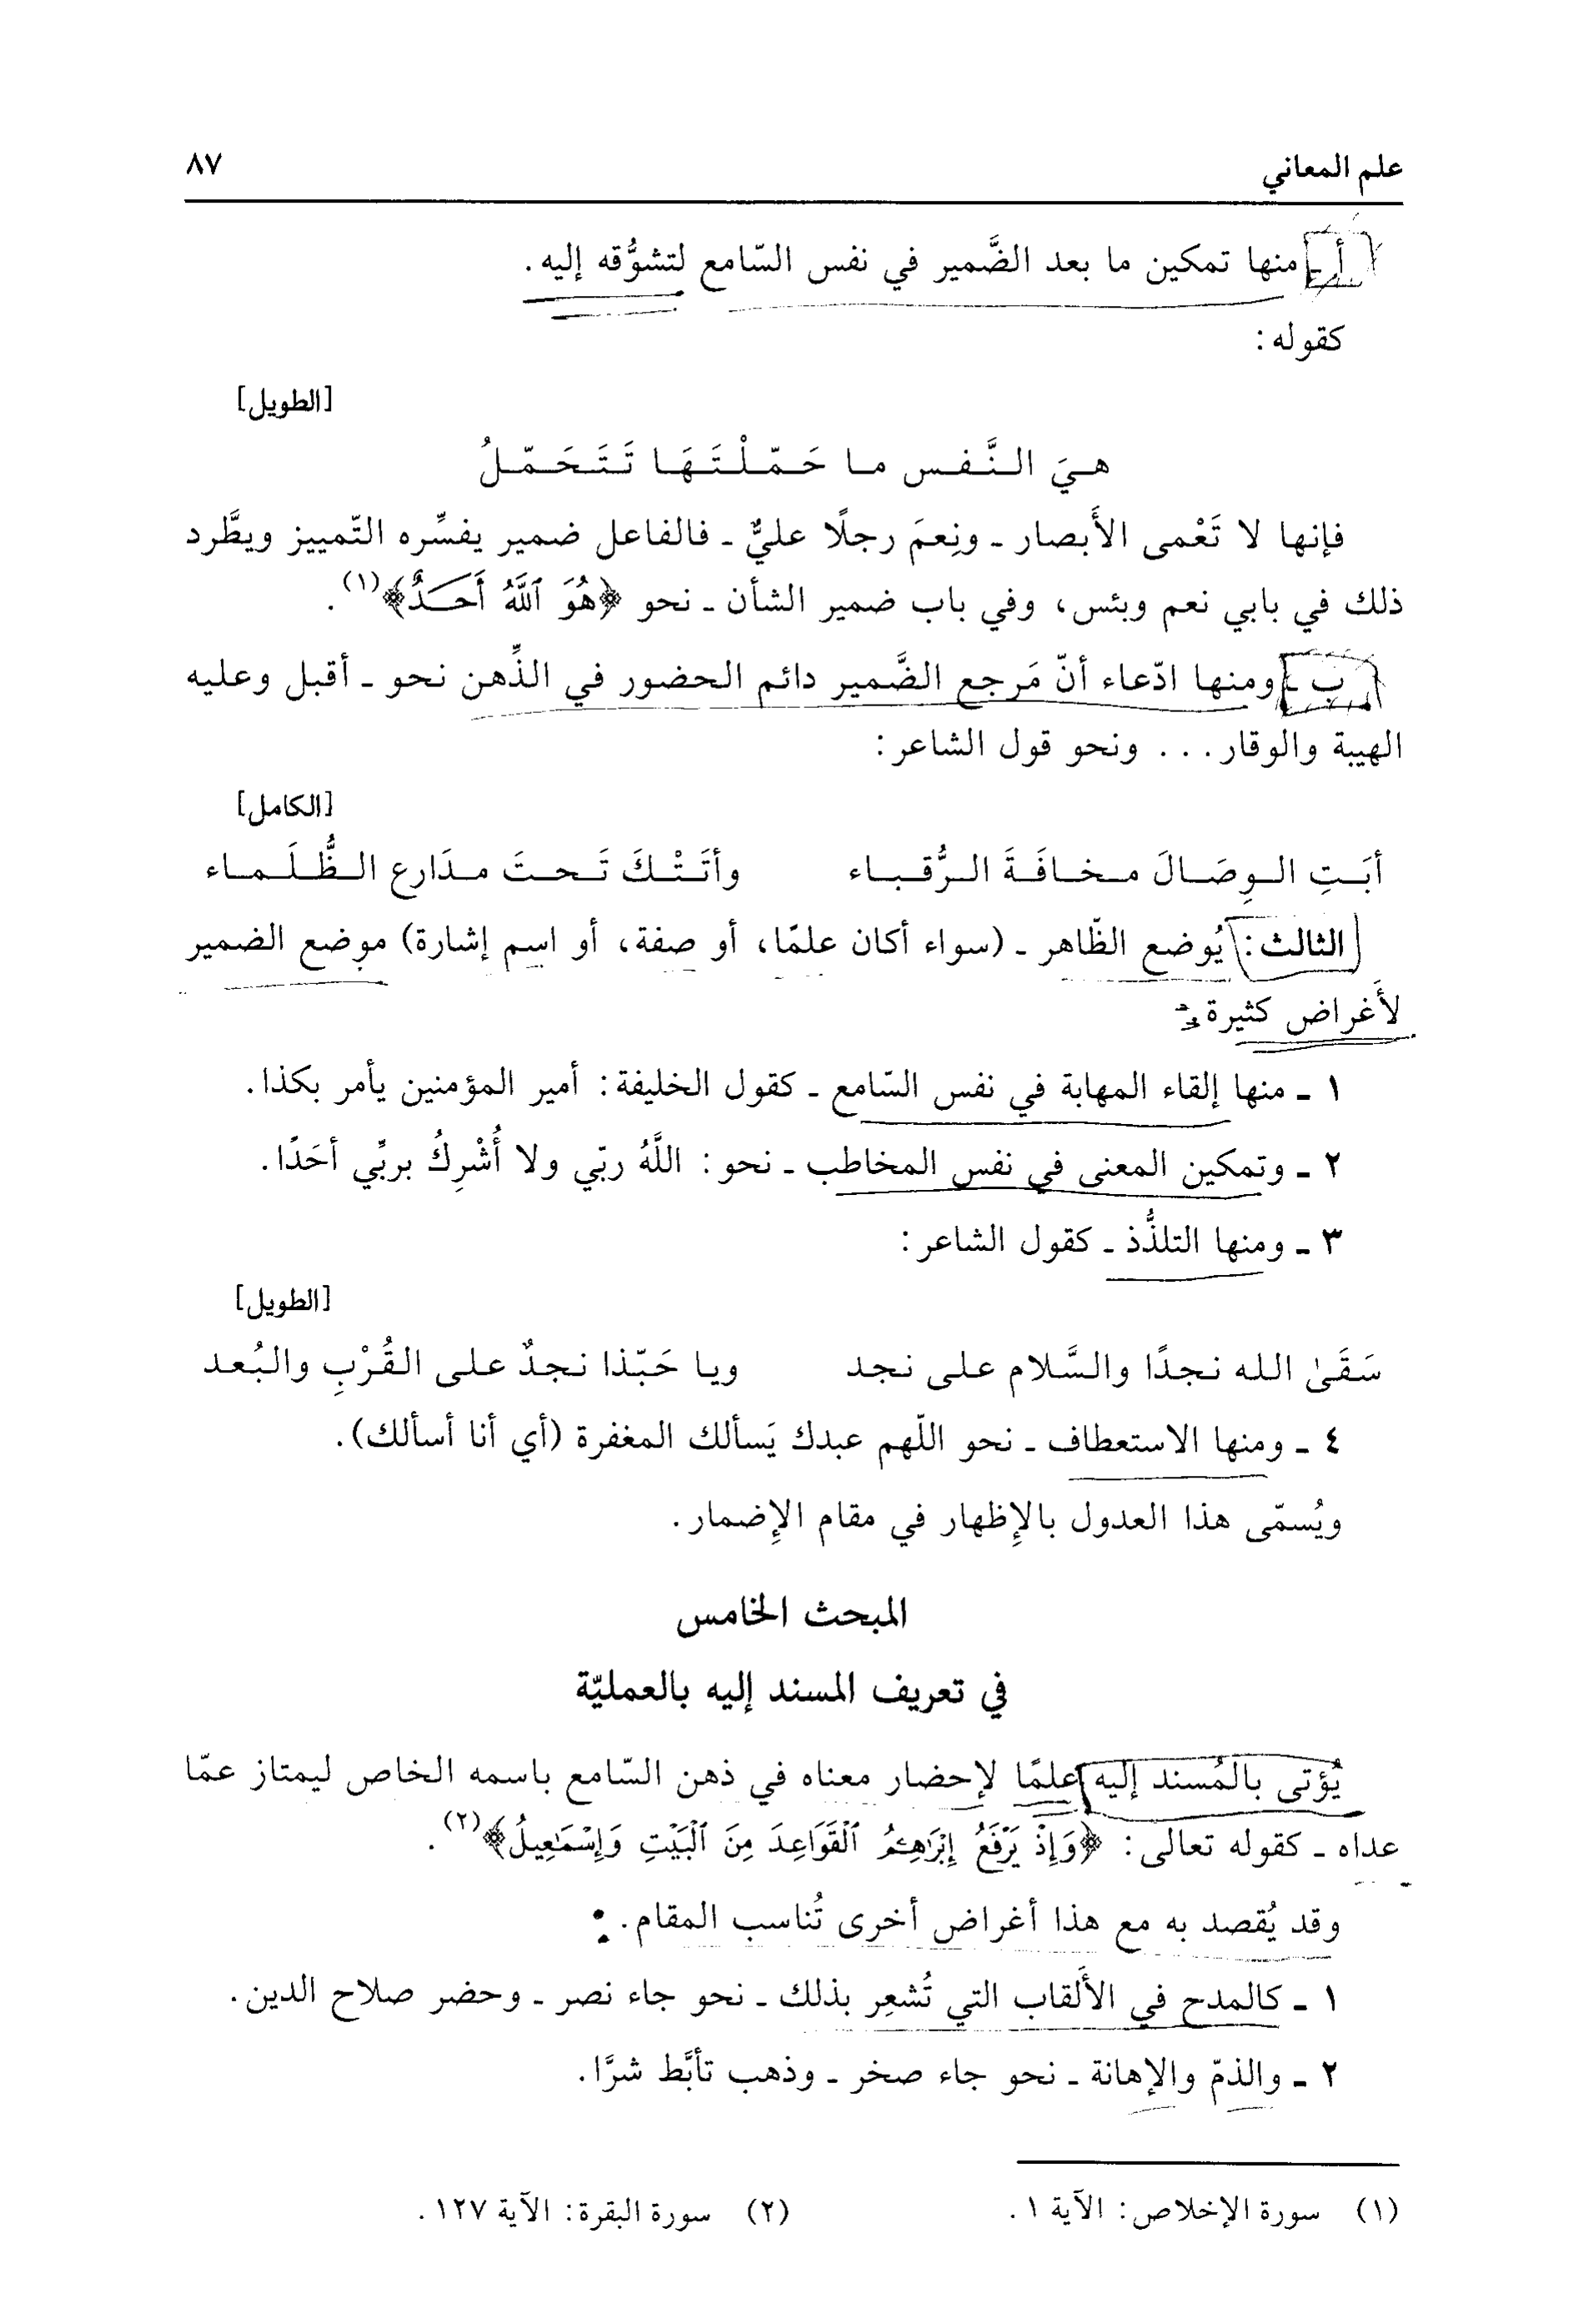 علم المعاني ٨٧
أ ـ منها تمكين ما بعد الضَّمير في نفس السّامع لتشوُّقه إليه.
كقوله:
[الطويل]
هيَ النَّفس ما حَمّلْتَهَا تَتَحَمّلُ
فإنها لا تَعْمى الأَبصار ـ ونِعمَ رجلًا عليٌّ ـ فالفاعل ضمير يفسِّره التّمييز ويطَّرد
ذلك في بابي نعم وبئس، وفي باب ضمير الشأن ـ نحو ﴿هُوَ ٱللَّهُ أَحَـدٌ﴾(١).
ب ـ ومنها ادّعاء أنّ مَرجع الضَّمير دائم الحضور في الذِّهن نحو ـ أقبل وعليه
الهيبة والوقار... ونحو قول الشاعر:
[الكامل]
أبَتِ الوِصَالَ مخافَةَ الرُّقباء وأتَتْكَ تَحتَ مدَارع الظُّلَماء
الثالث: يُوضع الظّاهر ـ (سواء أكان علمًا، أو صفة، أو اسم إشارة) موضع الضمير
لأَغراض كثيرة:
١ ـ منها إلقاء المهابة في نفس السّامع ـ كقول الخليفة: أمير المؤمنين يأمر بكذا.
٢ ـ وتمكين المعنى في نفس المخاطب ـ نحو: اللَّهُ ربّي ولا أُشْرِكُ بربِّي أحَدًا.
٣ ـ ومنها التلذُّذ ـ كقول الشاعر:
[الطويل]
سَقَىٰ الله نجدًا والسَّلام على نجد ويا حَبّذا نجدٌ على القُرْبِ والبُعد
٤ ـ ومنها الاستعطاف ـ نحو اللّهم عبدك يَسألك المغفرة (أي أنا أسألك).
ويُسمّى هذا العدول بالإِظهار في مقام الإِضمار.
المبحث الخامس
في تعريف المسند إليه بالعمليّة
يُؤتى بالمُسند إليه علمًا لإحضار معناه في ذهن السّامع باسمه الخاص ليمتاز عمّا
عداه ـ كقوله تعالى: ﴿وَإِذْ يَرْفَعُ إِبْرَٰهِـۧمُ ٱلْقَوَاعِدَ مِنَ ٱلْبَيْتِ وَإِسْمَٰعِيلُ﴾(٢).
وقد يُقصد به مع هذا أغراض أخرى تُناسب المقام.:
١ ـ كالمدح في الأَلقاب التي تُشعِر بذلك ـ نحو جاء نصر ـ وحضر صلاح الدين.
٢ ـ والذمّ والإهانة ـ نحو جاء صخر ـ وذهب تأبَّط شرَّا.
(١) سورة الإخلاص: الآية ١. (٢) سورة البقرة: الآية ١٢٧.